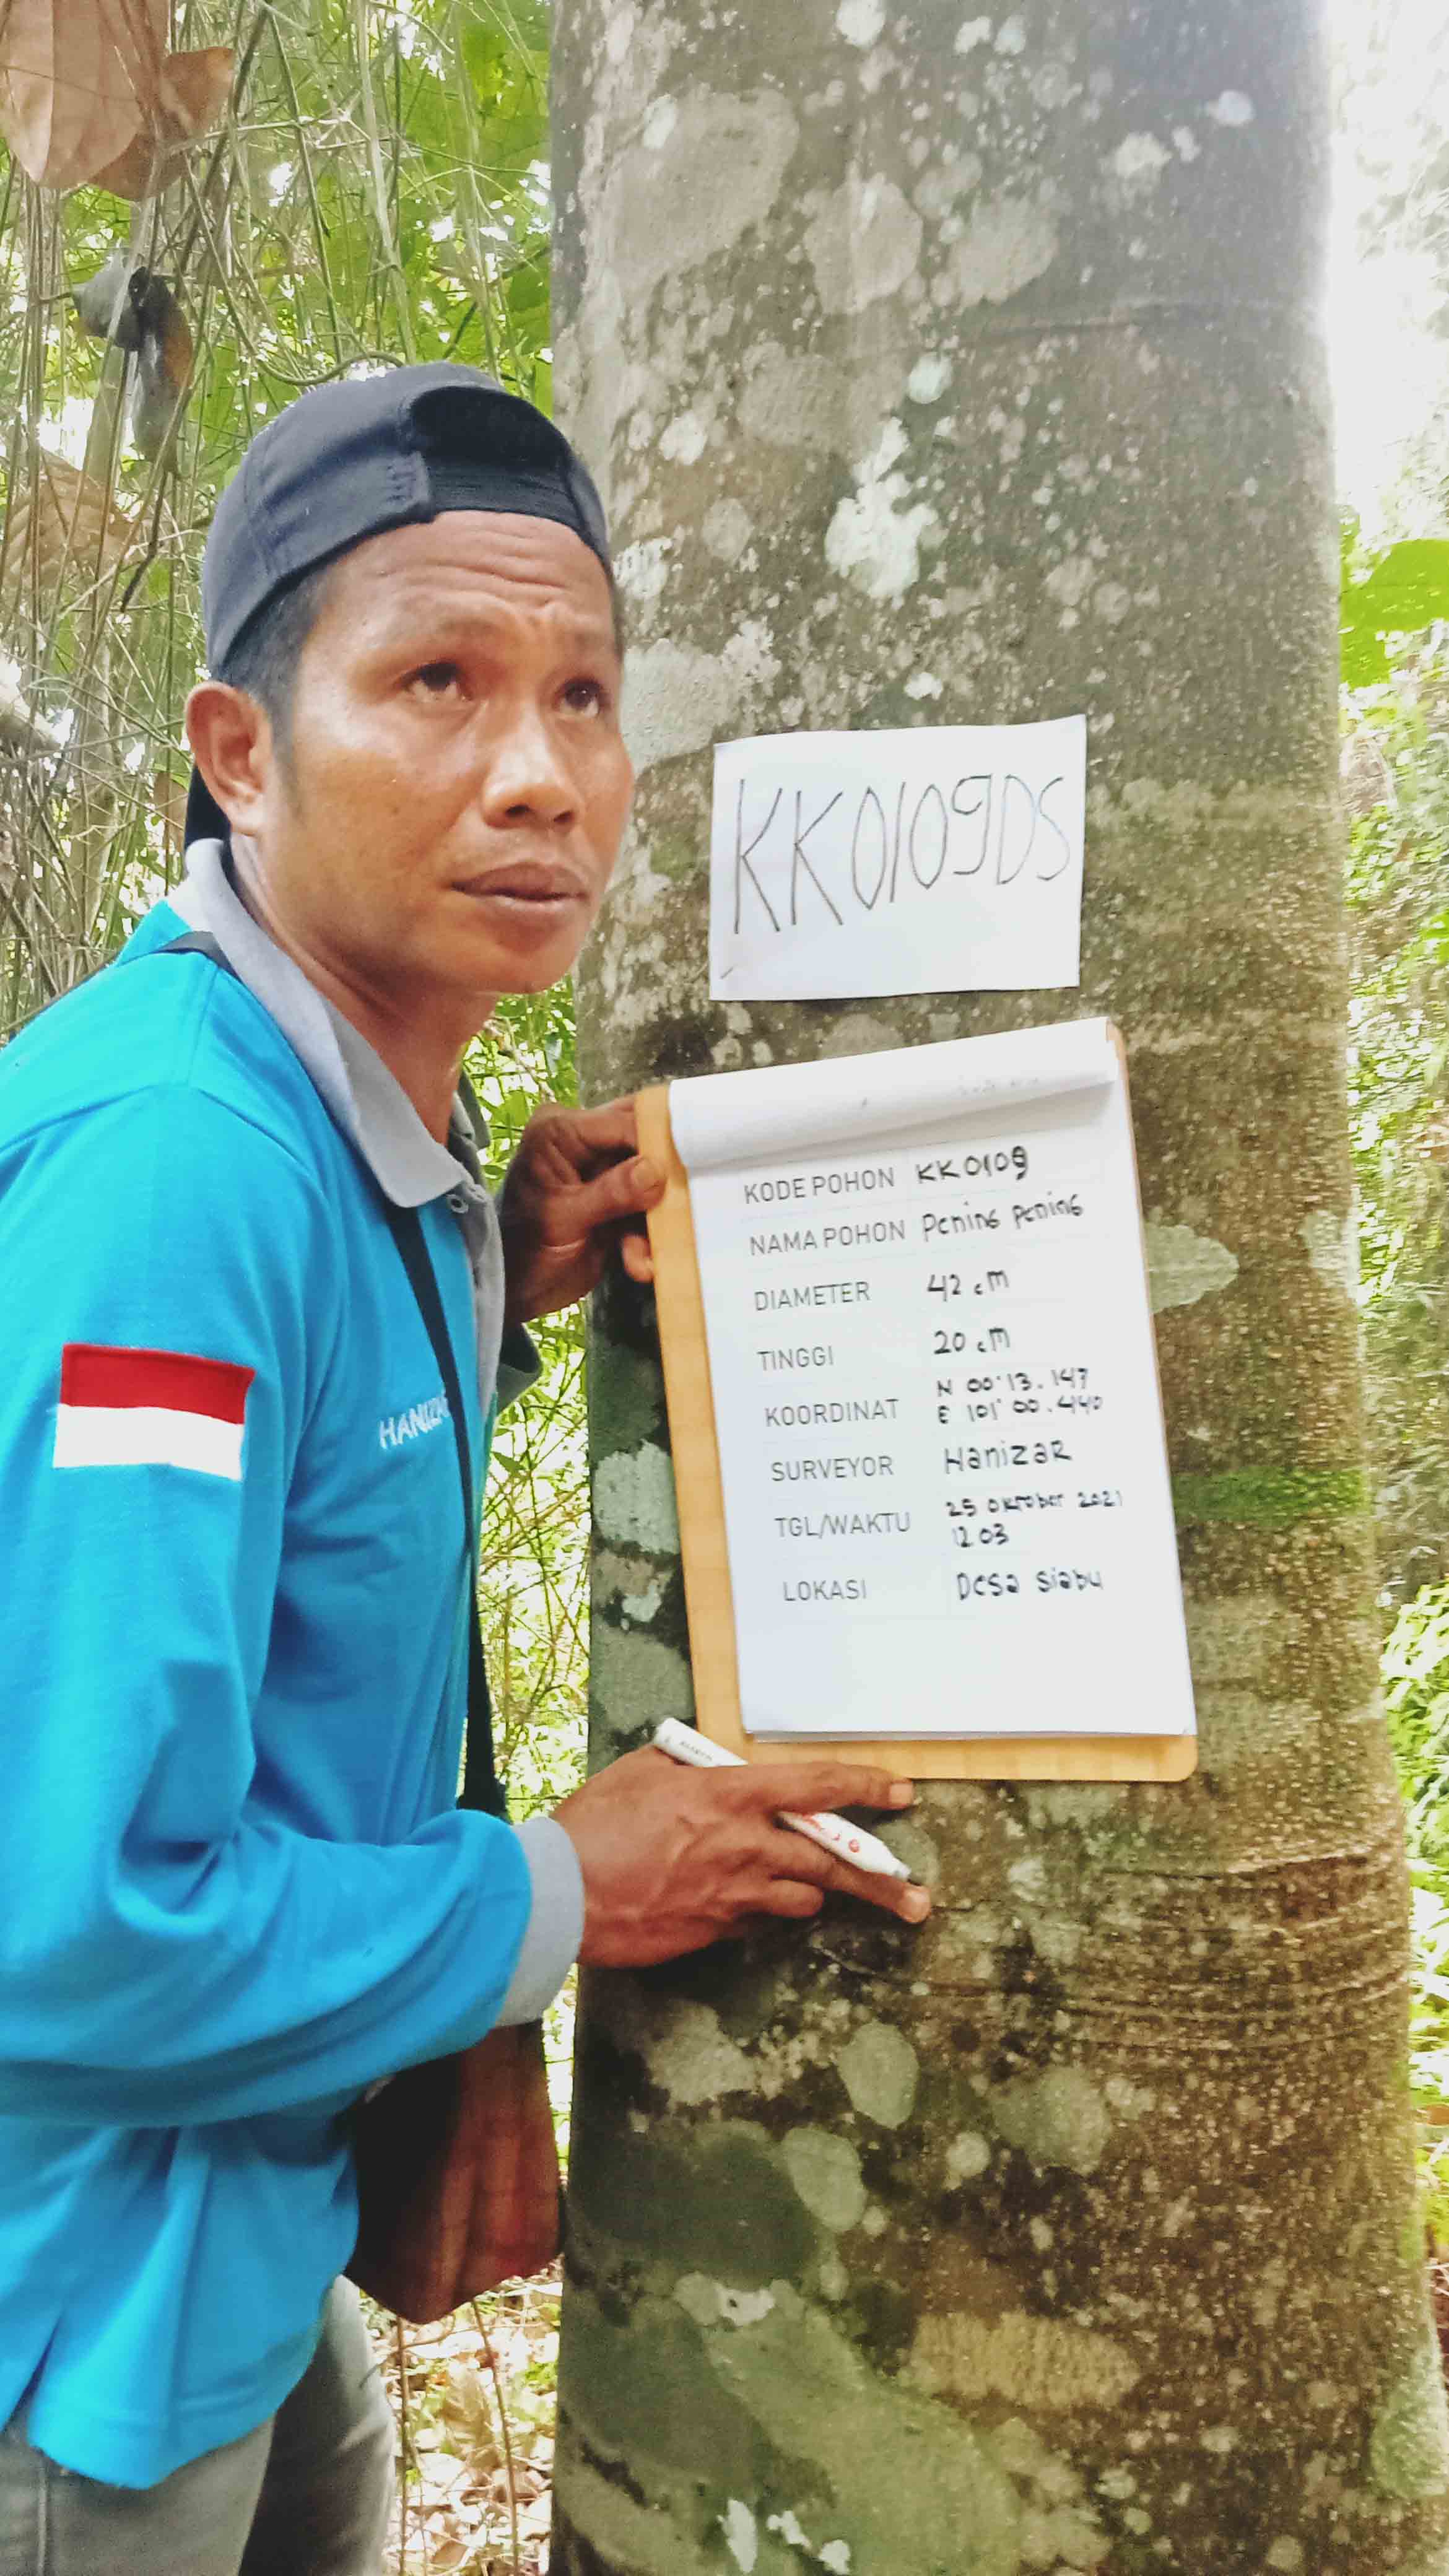 KK0109DS
KODE POHON KK0109
NAMA POHON Pening pening
DIAMETER 42 cm
TINGGI 20 cm
KOORDINAT N 00°13.147
E 101°00.440
SURVEYOR Hanizar
TGL/WAKTU 25 Oktober 2021
12 03
LOKASI Desa Siabu
HANIZA